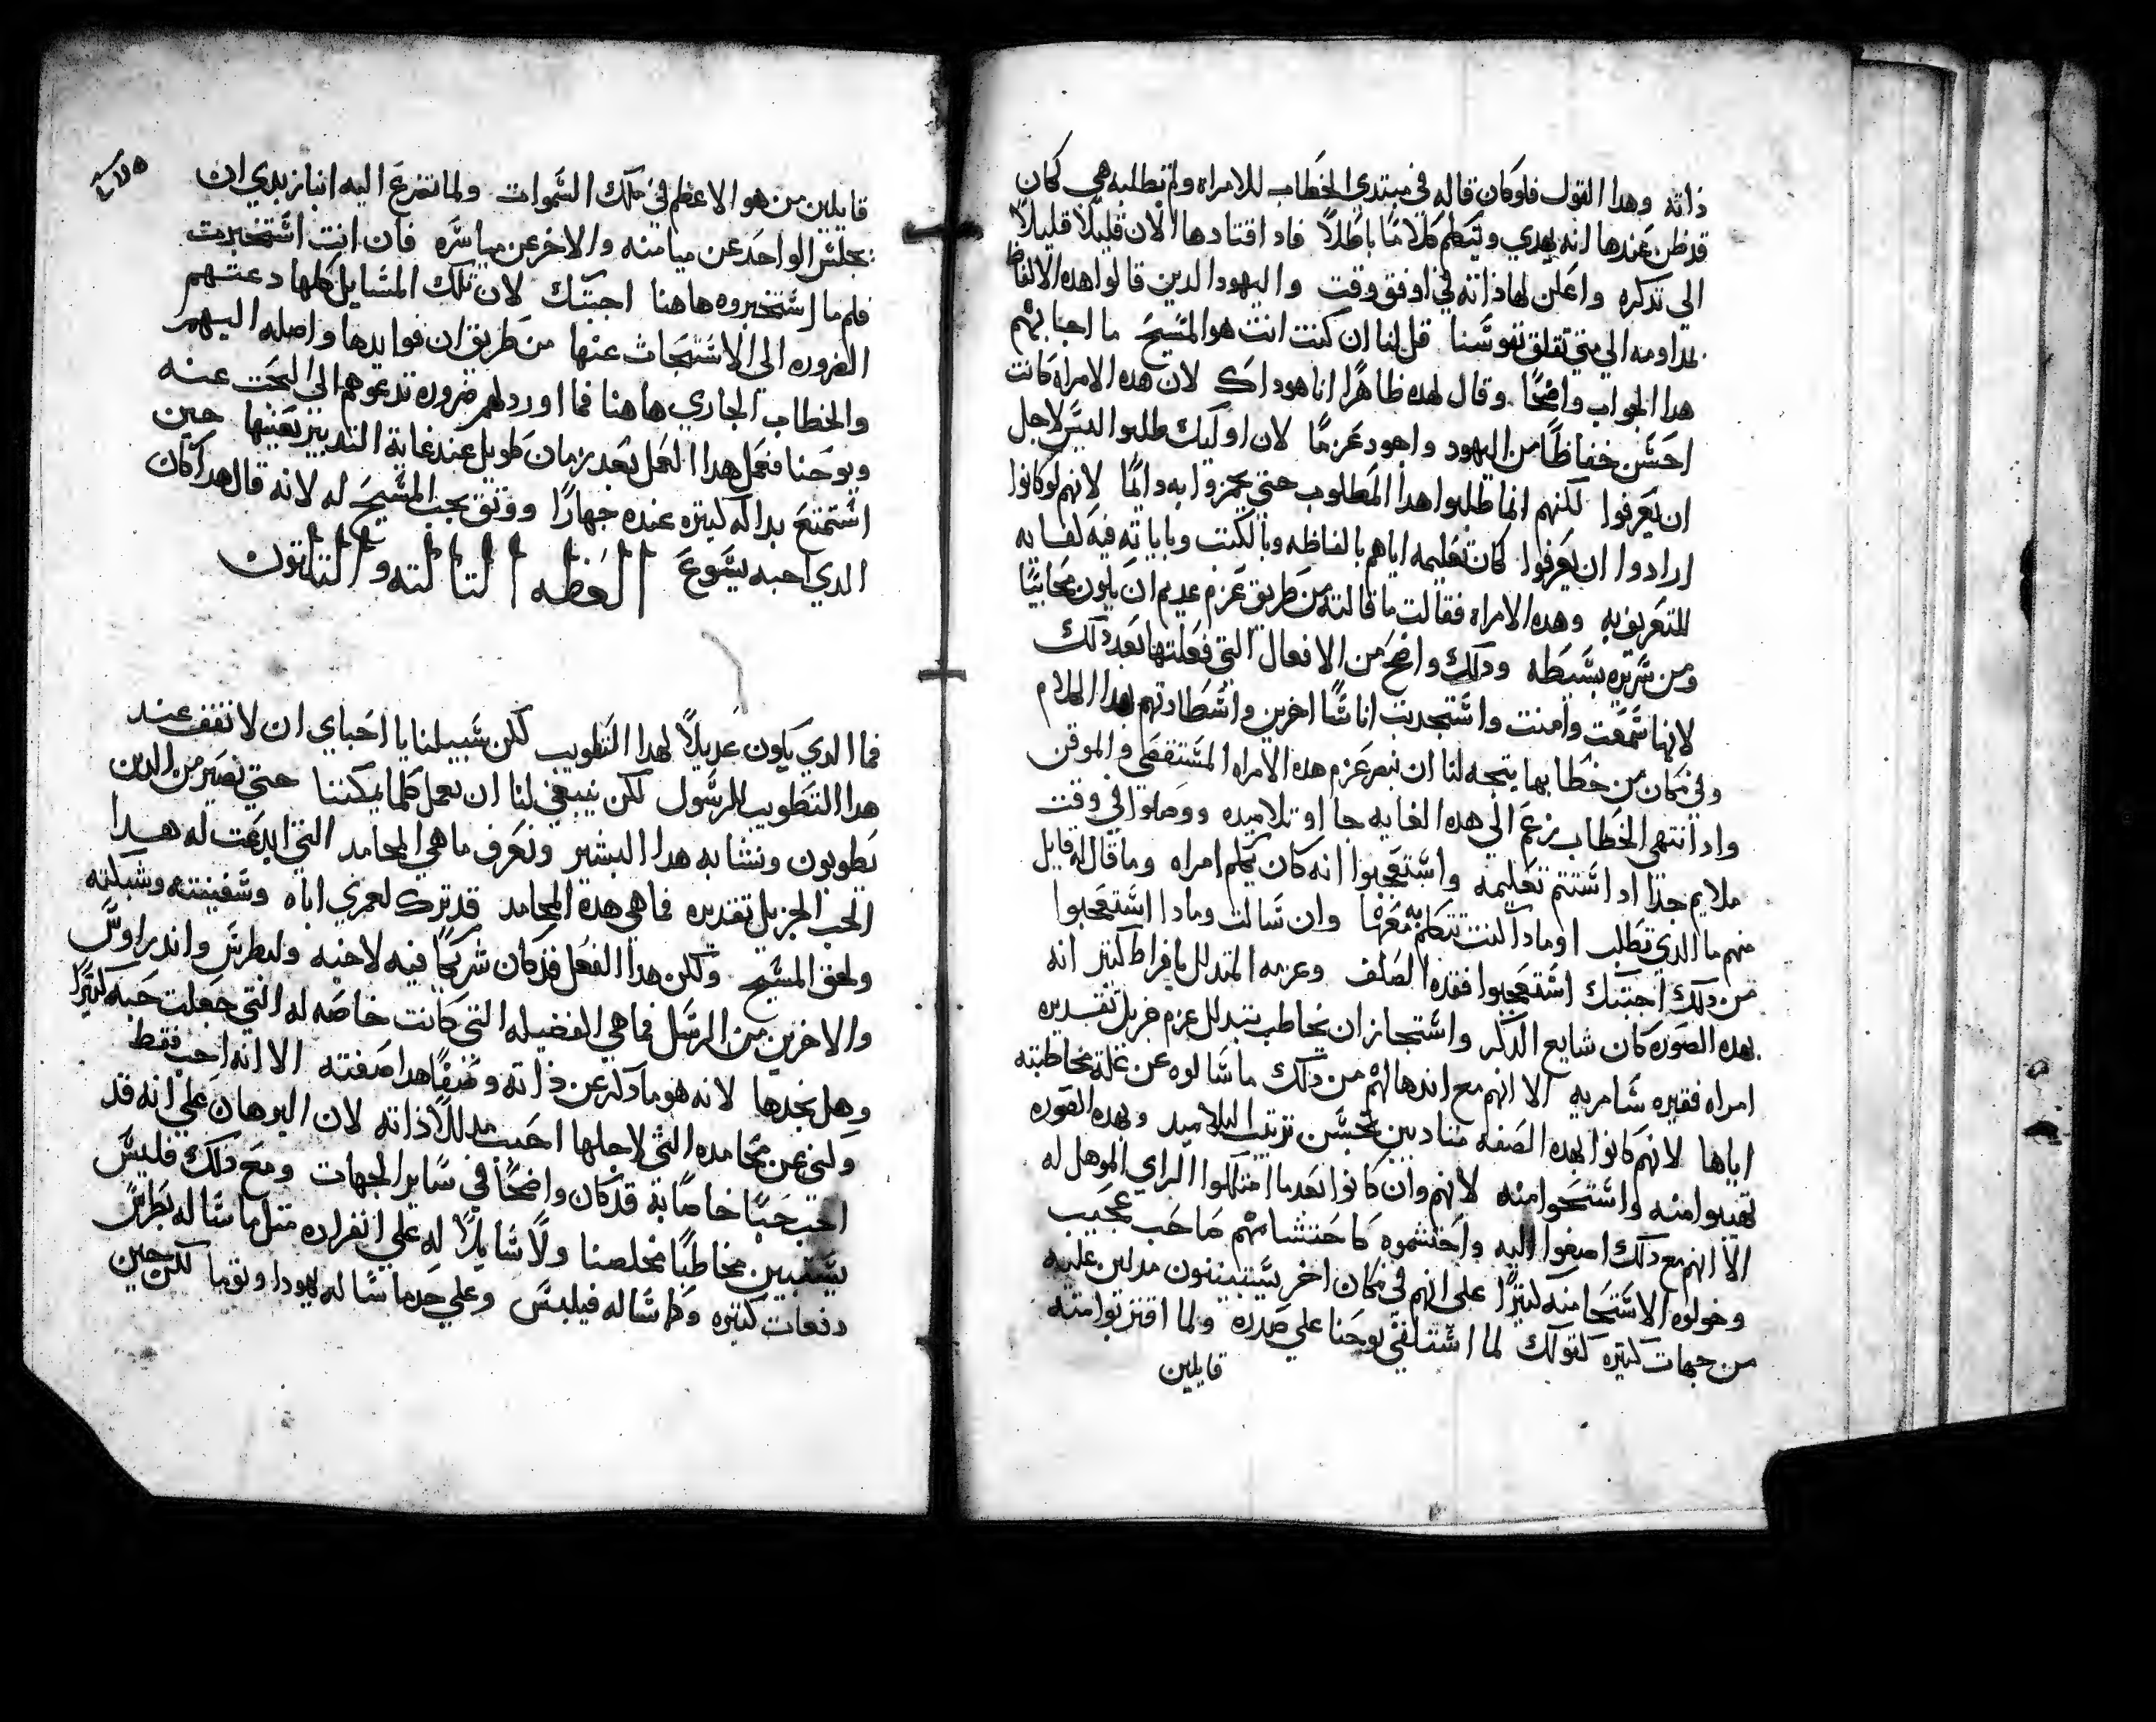 ذاته وهدا القول فلوكان قاله في مبتدي الخطاب للامراه ولم تطلبه هي كان
قد ظن عندها انه يهدي ويتكلم كلامًا باطلاً فاد اقتادها الان قليلاً قليلاً
الى تدكره واعلن لها ذاته في اوفق وقت واليهود الدين قالوا هده الالفاظ
مداومه الي متي تقلق نفوسنا قل لنا ان كنت انت هو المسيح ما اجابهم
هدا الجواب واضحًا وقال لهده ظاهرًا انا هوداك لان هده الامراه كانت
احسن حفاظًا من اليهود واجود عزمًا لان اوليك طلبوا ليس لاجل
ان يعرفوا لكنهم انما طلبوا هدا المطلوب حتي يهمزوا به دايمًا لانهم لوكانوا
ارادوا ان يعرفوا كان تعليمه اياهم بالفاظه وبالكتب وباياته فيه كفايه
للتعريف به وهده الامراه فقالت ما قالته من طريق عزم عديم ان يكون محابيًا
ومن سريره بسيطه ودلك واضح من الافعال التي فعلتها بعد دلك
لانها سمعت وامنت واستجدبت اناسًا اخرين واسطادتهم بهدا الكلام
وفي مكان من خطابها يتجه لنا ان نبصر عزم هده الامراه المستقصي والموقن
واد انتهي الخطاب زعم الي هده الغايه جااو تلاميده ووصلوا في وقت
ملايم جدًا اد استتم تعليمه واستعجبوا انه كان يكلم امراه وما قال له قايل
منهم ما الدي تطلب او مادا كنت تتكلم به معها وان سالت ومادا استعجبوا
من دلك اجبتك استعجبوا فقده الصلف وعزمه المتدلل بافراط كثير انه
بهده الصوره كان شايع الدكر واستجاز ان يخاطب بتدلل عزم جزيل تقديره
امراه فقيره سامريه الا انهم مع اندهالهم من دلك ما سالوه عن علة مخاطبته
اياها لانهم كانوا بهده الصفه متادبين بحسن ترتيب التلاميد وبهده الصوره
تهيبوا منه واستحوا منه لانهم وان كانوا بعد ما امتلكوا الراي الموهل له
الا انهم مع دلك اصغوا اليه واحتشموه كاحتشامهم صاحب عجيب
وخولوه الاستحا منه كثيرًا على انهم في مكان اخر يستبينون مدلين عليه
من جهات كتيره كقولك لما استلقي يوحنا علي صدره ولما اقتربوا منه
قايلين
قايلين من هو الاعظم في ملك السموات ولما تضرع اليه ابنا زبدي ان
يجلس الواحد عن ميامنه والاخر عن مياسره فان انت استخبرت
فلم ما استخبروه هاهنا اجبتك لان تلك المسايل كلها دعتهم
الضروره الى الاستبحاث عنها من طريق ان فوايدها واصله اليهم
والخطاب الجاري هاهنا فما اورد لهم ضروره تدعوهم الى البحت عنه
ويوحنا فعمل هدا العمل بعد زمان طويل عند غاية التدبير بعينها حين
استمتع بداله كتيره عنده جهارًا ووتق بحب المسيح له لانه قال هداكان
الدي احبه يسوع العظه التالته والتلاتون
فما الدي يكون عديلاً لهدا التطويب لكن سبيلنا يا احباي ان لا نقف عند
هدا التطويب للرسول لكن ينبغي لنا ان نعمل كلما يمكننا حتي نصير من الدين
يطوبون ونتشابه هدا البشير ونعرف ما هي المحامد التي ابدعت له هدا
الحب الجزيل تقديره فما هي هدة المحامد قد ترك لعمري اباه وسفينته وشبكته
ولحق المسيح ولكن هدا الفعل قد كان شريكًا فيه لاخيه ولبطرس واندراوس
والاخرين من الرسل فما هي الفضيله التي كانت خاصه له التي جعلت حبه كتيرًا
وهل نجدها لانه هو ما دكر عن ذاته وصفًا هدا صفته الا انه احب فقط
وكني عن محامده التي لاجلها احب مدللاً ذاته لان البرهان علي انه قد
احب حبًا خاصًا به قد كان واضحًا في ساير الجهات ومع دلك فليس
يستبين مخاطبًا مخلصنا ولا سايلاً له علي انفراده متل ما ساله بطرس
دفعات كتيره وكما ساله فيلبس وعلي حد ما ساله يهودا وتوما لكن حين